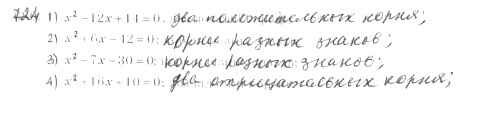 724 1) x² - 12x + 14 = 0; два положительных корня;
2) x² + 6x - 12 = 0; корни разных знаков;
3) x² - 7x - 30 = 0; корни разных знаков;
4) x² + 16x + 10 = 0; два отрицательных корня;